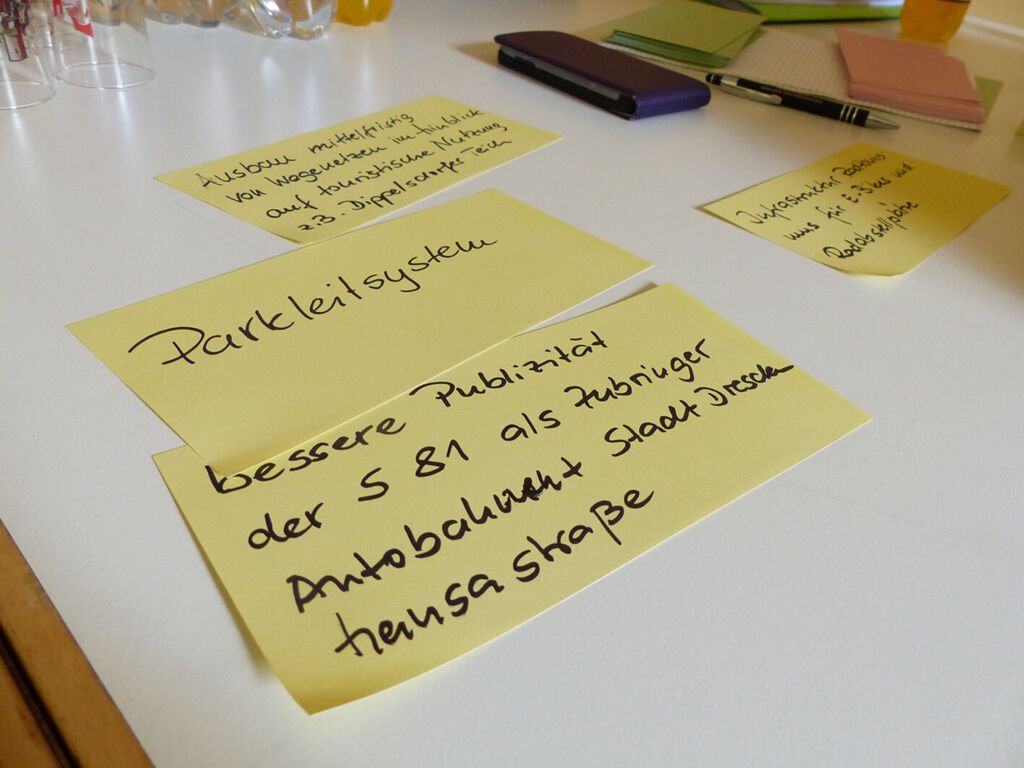 Ausbau mittelfristig
von Wegenetzen im Hinblick
auf touristische Nutzung
z.B. Dippelsdorfer Teich
Parkleitsystem
bessere Publizität
der S 81 als Zubringer
Autobahn Stadt Dresden
hansastraße
Infrastruktur
für E-Bikes und
Radabstellplätze